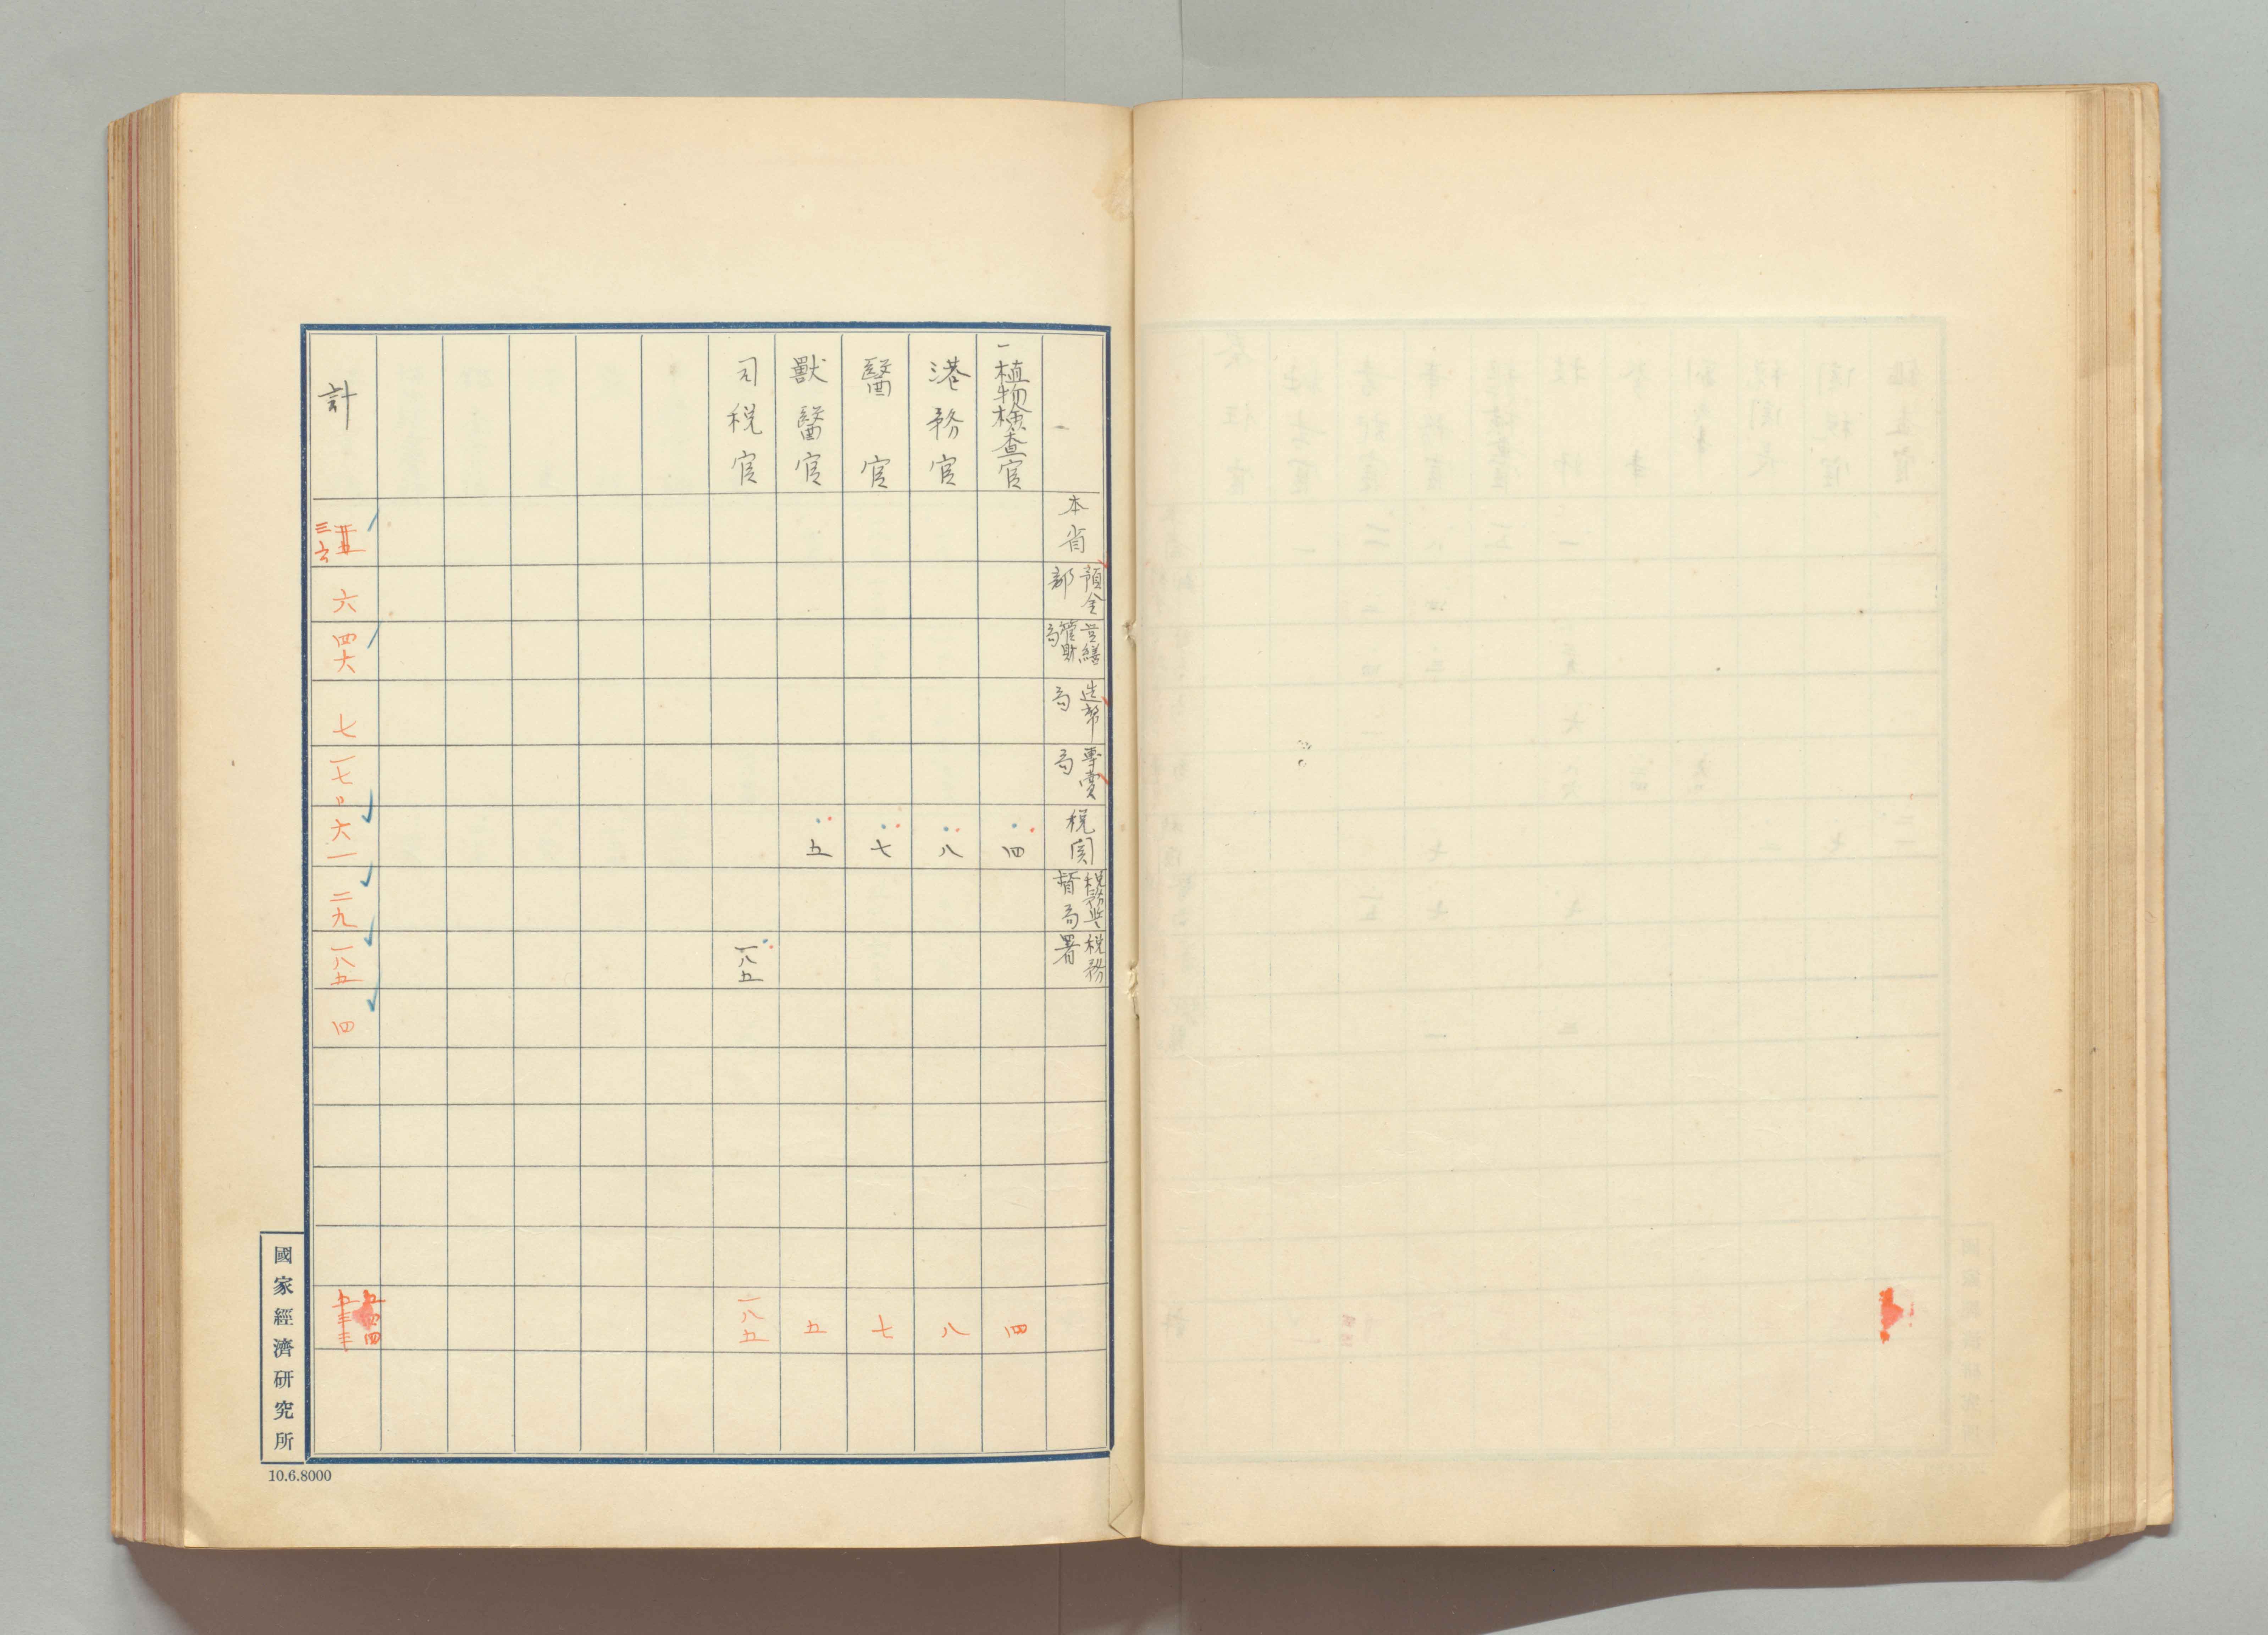 本省
預金部
営繕管財局
造幣局
專賣局
税関
税務監督局
税務署
植物検査官
四
四
港務官
八
八
醫官
七
七
獸醫官
五
五
司税官
一八五
一八五
計
三六
六
四六
七
一七
六一
二九
一八五
四
國家經濟研究所
10.6.8000